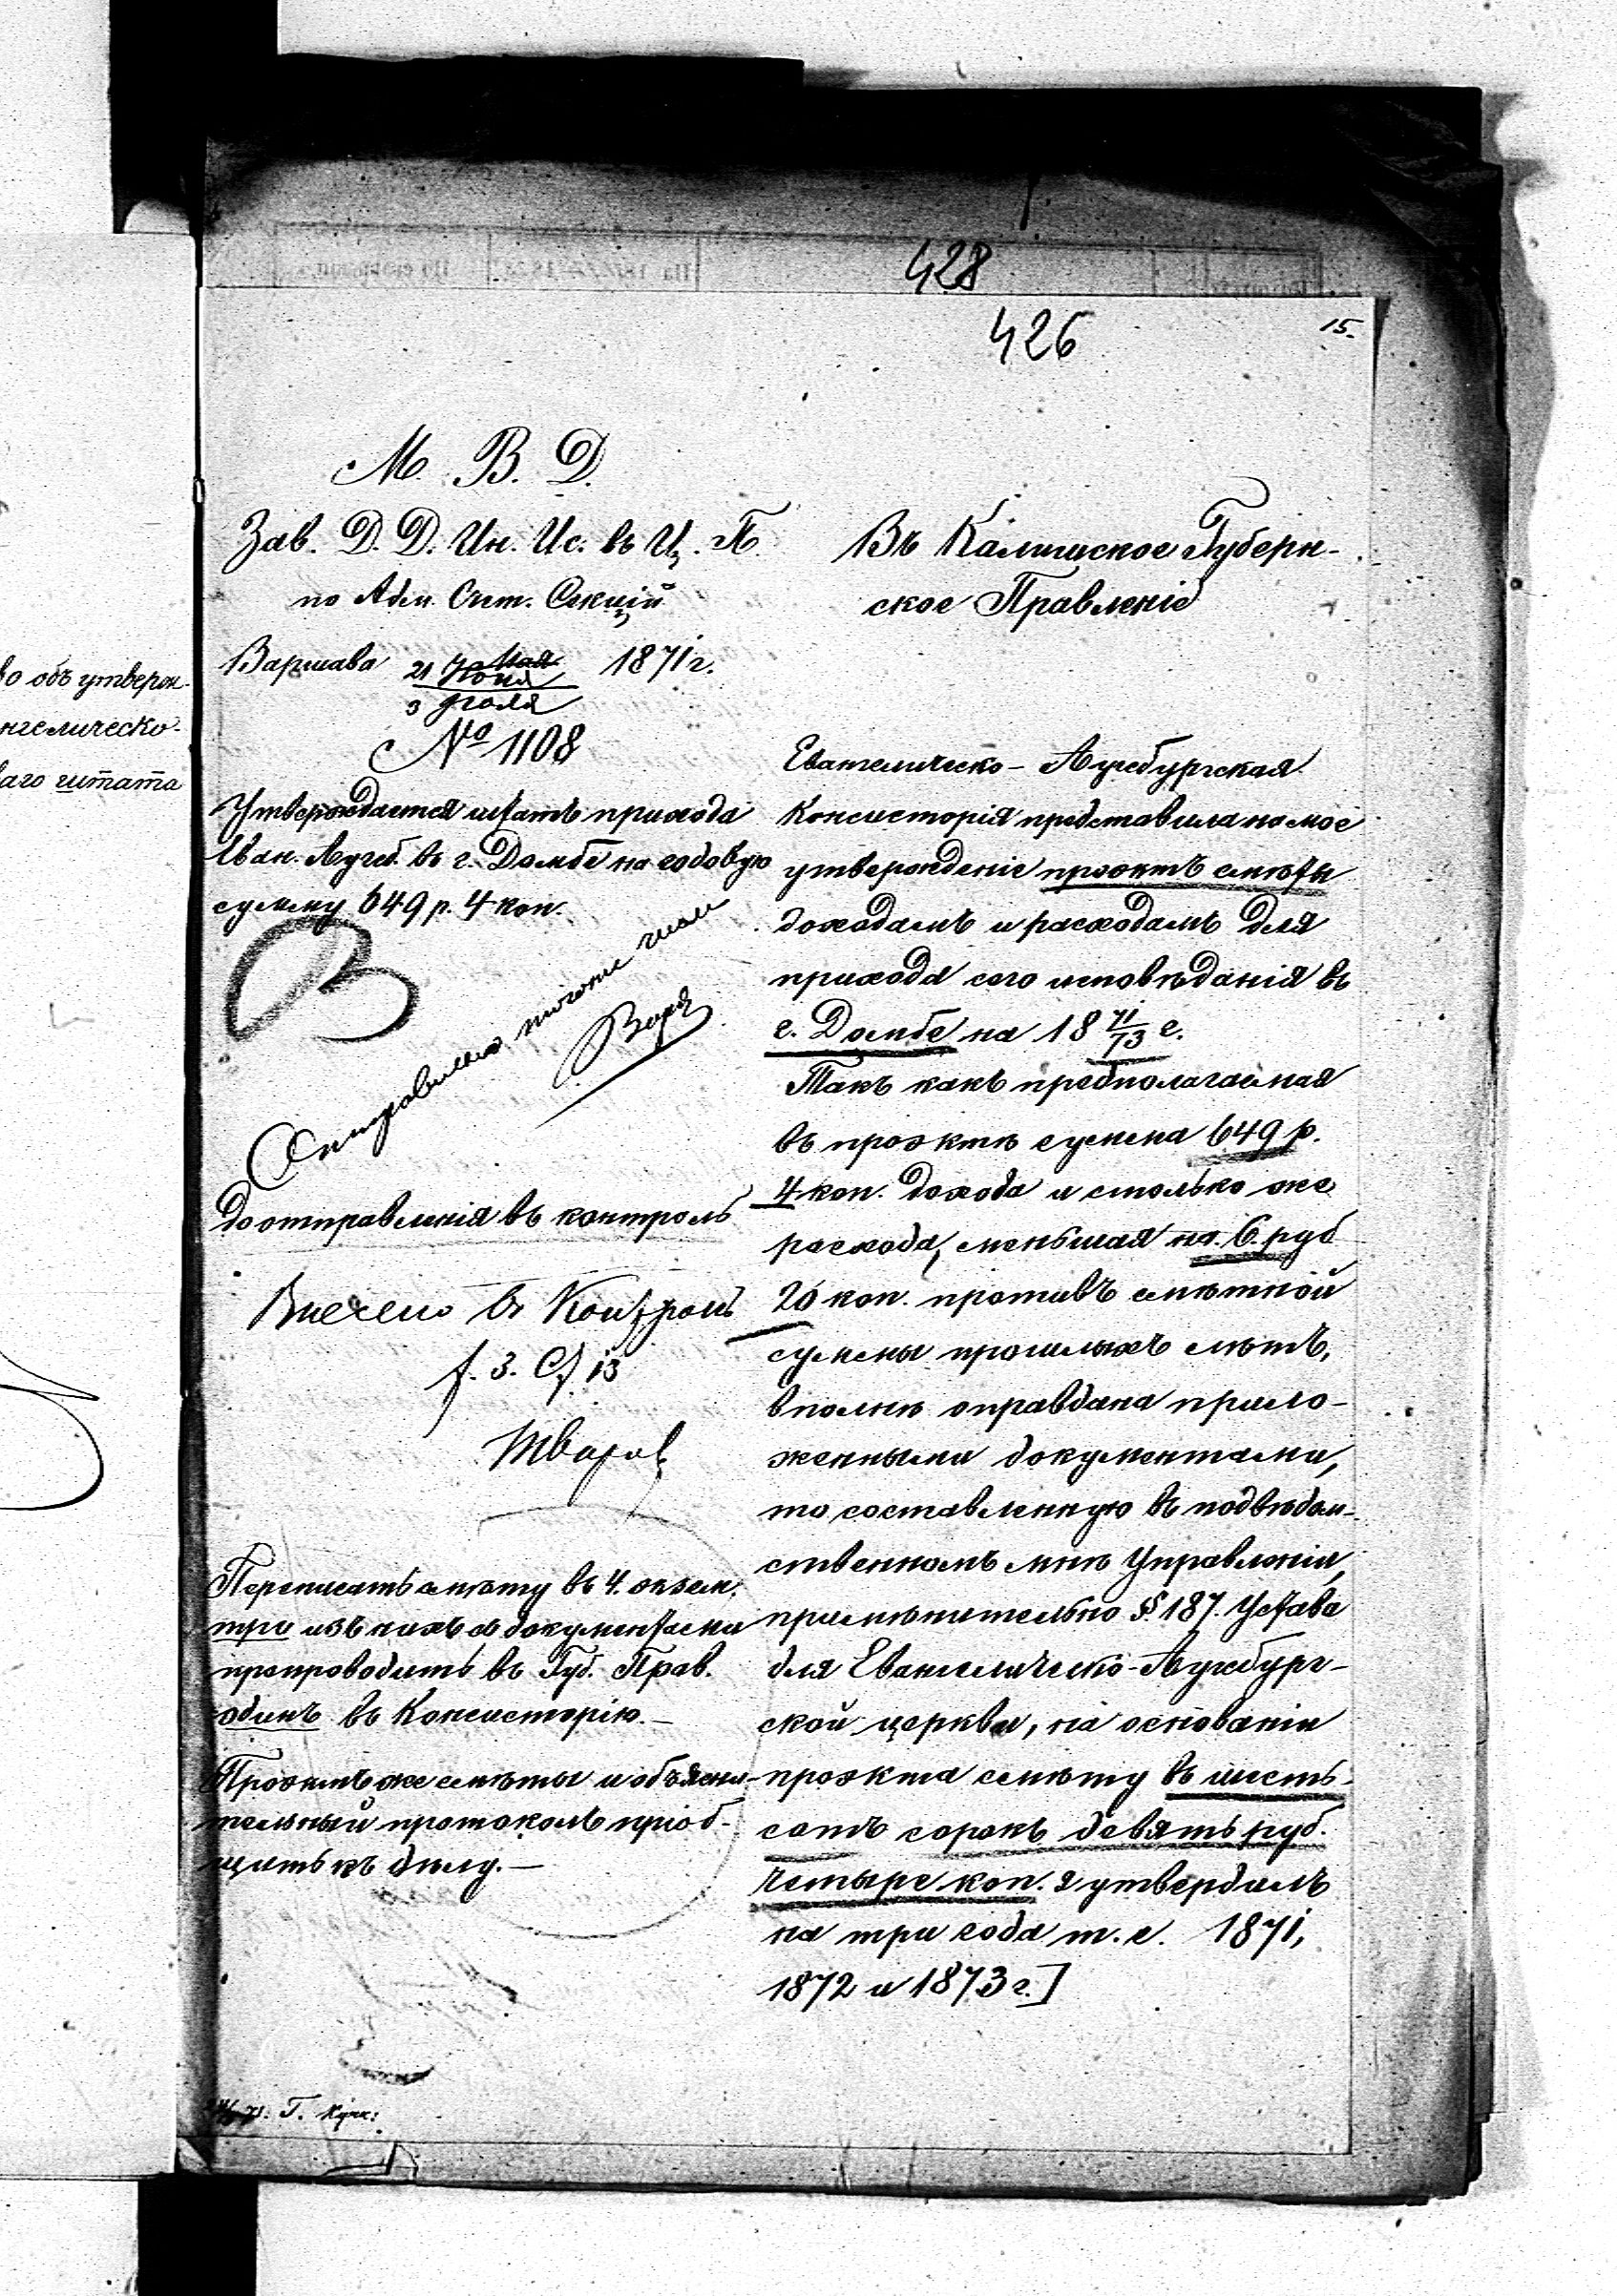 428
426
15.
М. В. Д.
Зав. Д. Д. Ин. Ис. въ Ц. П.
по Адм. Счт. Секціи
Варшава 21 Мая Іюня 1871 г.
3 Іюля
№ 1108
Утверждается штатъ прихода
Еван. Аугсб. въ г. Домбе на годовую
сумму 649 р. 4 коп.
до отправленія въ контроль
Внесено въ Контроль
f. 3. Cf 13
Переписать смѣту въ 4. экзем.
три изъ нихъ съ документами
препроводить въ Губ. Прав.
одинъ въ Консисторію.—
Проэктъ же смѣты и объясни-
тельный протоколъ пріоб-
щить къ дѣлу.—
Г.
Въ Калишское Губерн-
ское Правленіе
Евангелическо-Аугсбургская
Консисторія представила на мое
утвержденіе проэктъ смѣты
доходамъ и расходамъ для
прихода сего исповѣданія въ
г. Домбе на 18 71/73 г.
Такъ какъ предполагаемая
въ проэктѣ сумма 649 р.
4 коп. дохода и столько же
расхода, меньшая на 6. руб
20 коп. противъ смѣтной
суммы прошлыхъ лѣтъ,
вполнѣ оправдана прило-
женными документами,
то составленную въ подвѣдом-
ственномъ мнѣ Управленіи,
примѣнительно § 187. Устава
для Евангелическо-Аугсбург-
ской церкви, на основаніи
проэкта смѣту въ шесть-
сотъ сорокъ девять руб.
четыре коп. я утвердилъ
на три года т. е. 1871,
1872 и 1873 г.]
во объ утверж-
нгелическо-
ваго штата